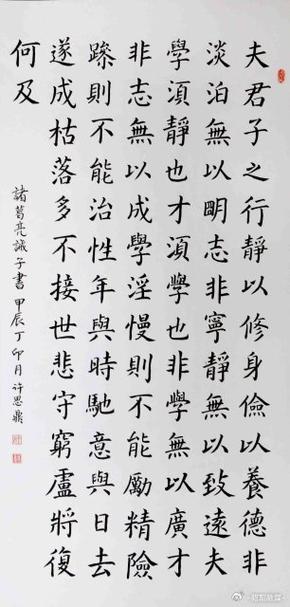 夫君子之行靜以修身儉以養德非
淡泊無以明志非寧靜無以致遠夫
學須靜也才須學也非學無以廣才
非志無以成學淫慢則不能勵精險
躁則不能治性年與時馳意與日去
遂成枯落多不接世悲守窮廬將復
何及
諸葛亮誡子書 甲辰丁卯月 许思鼎